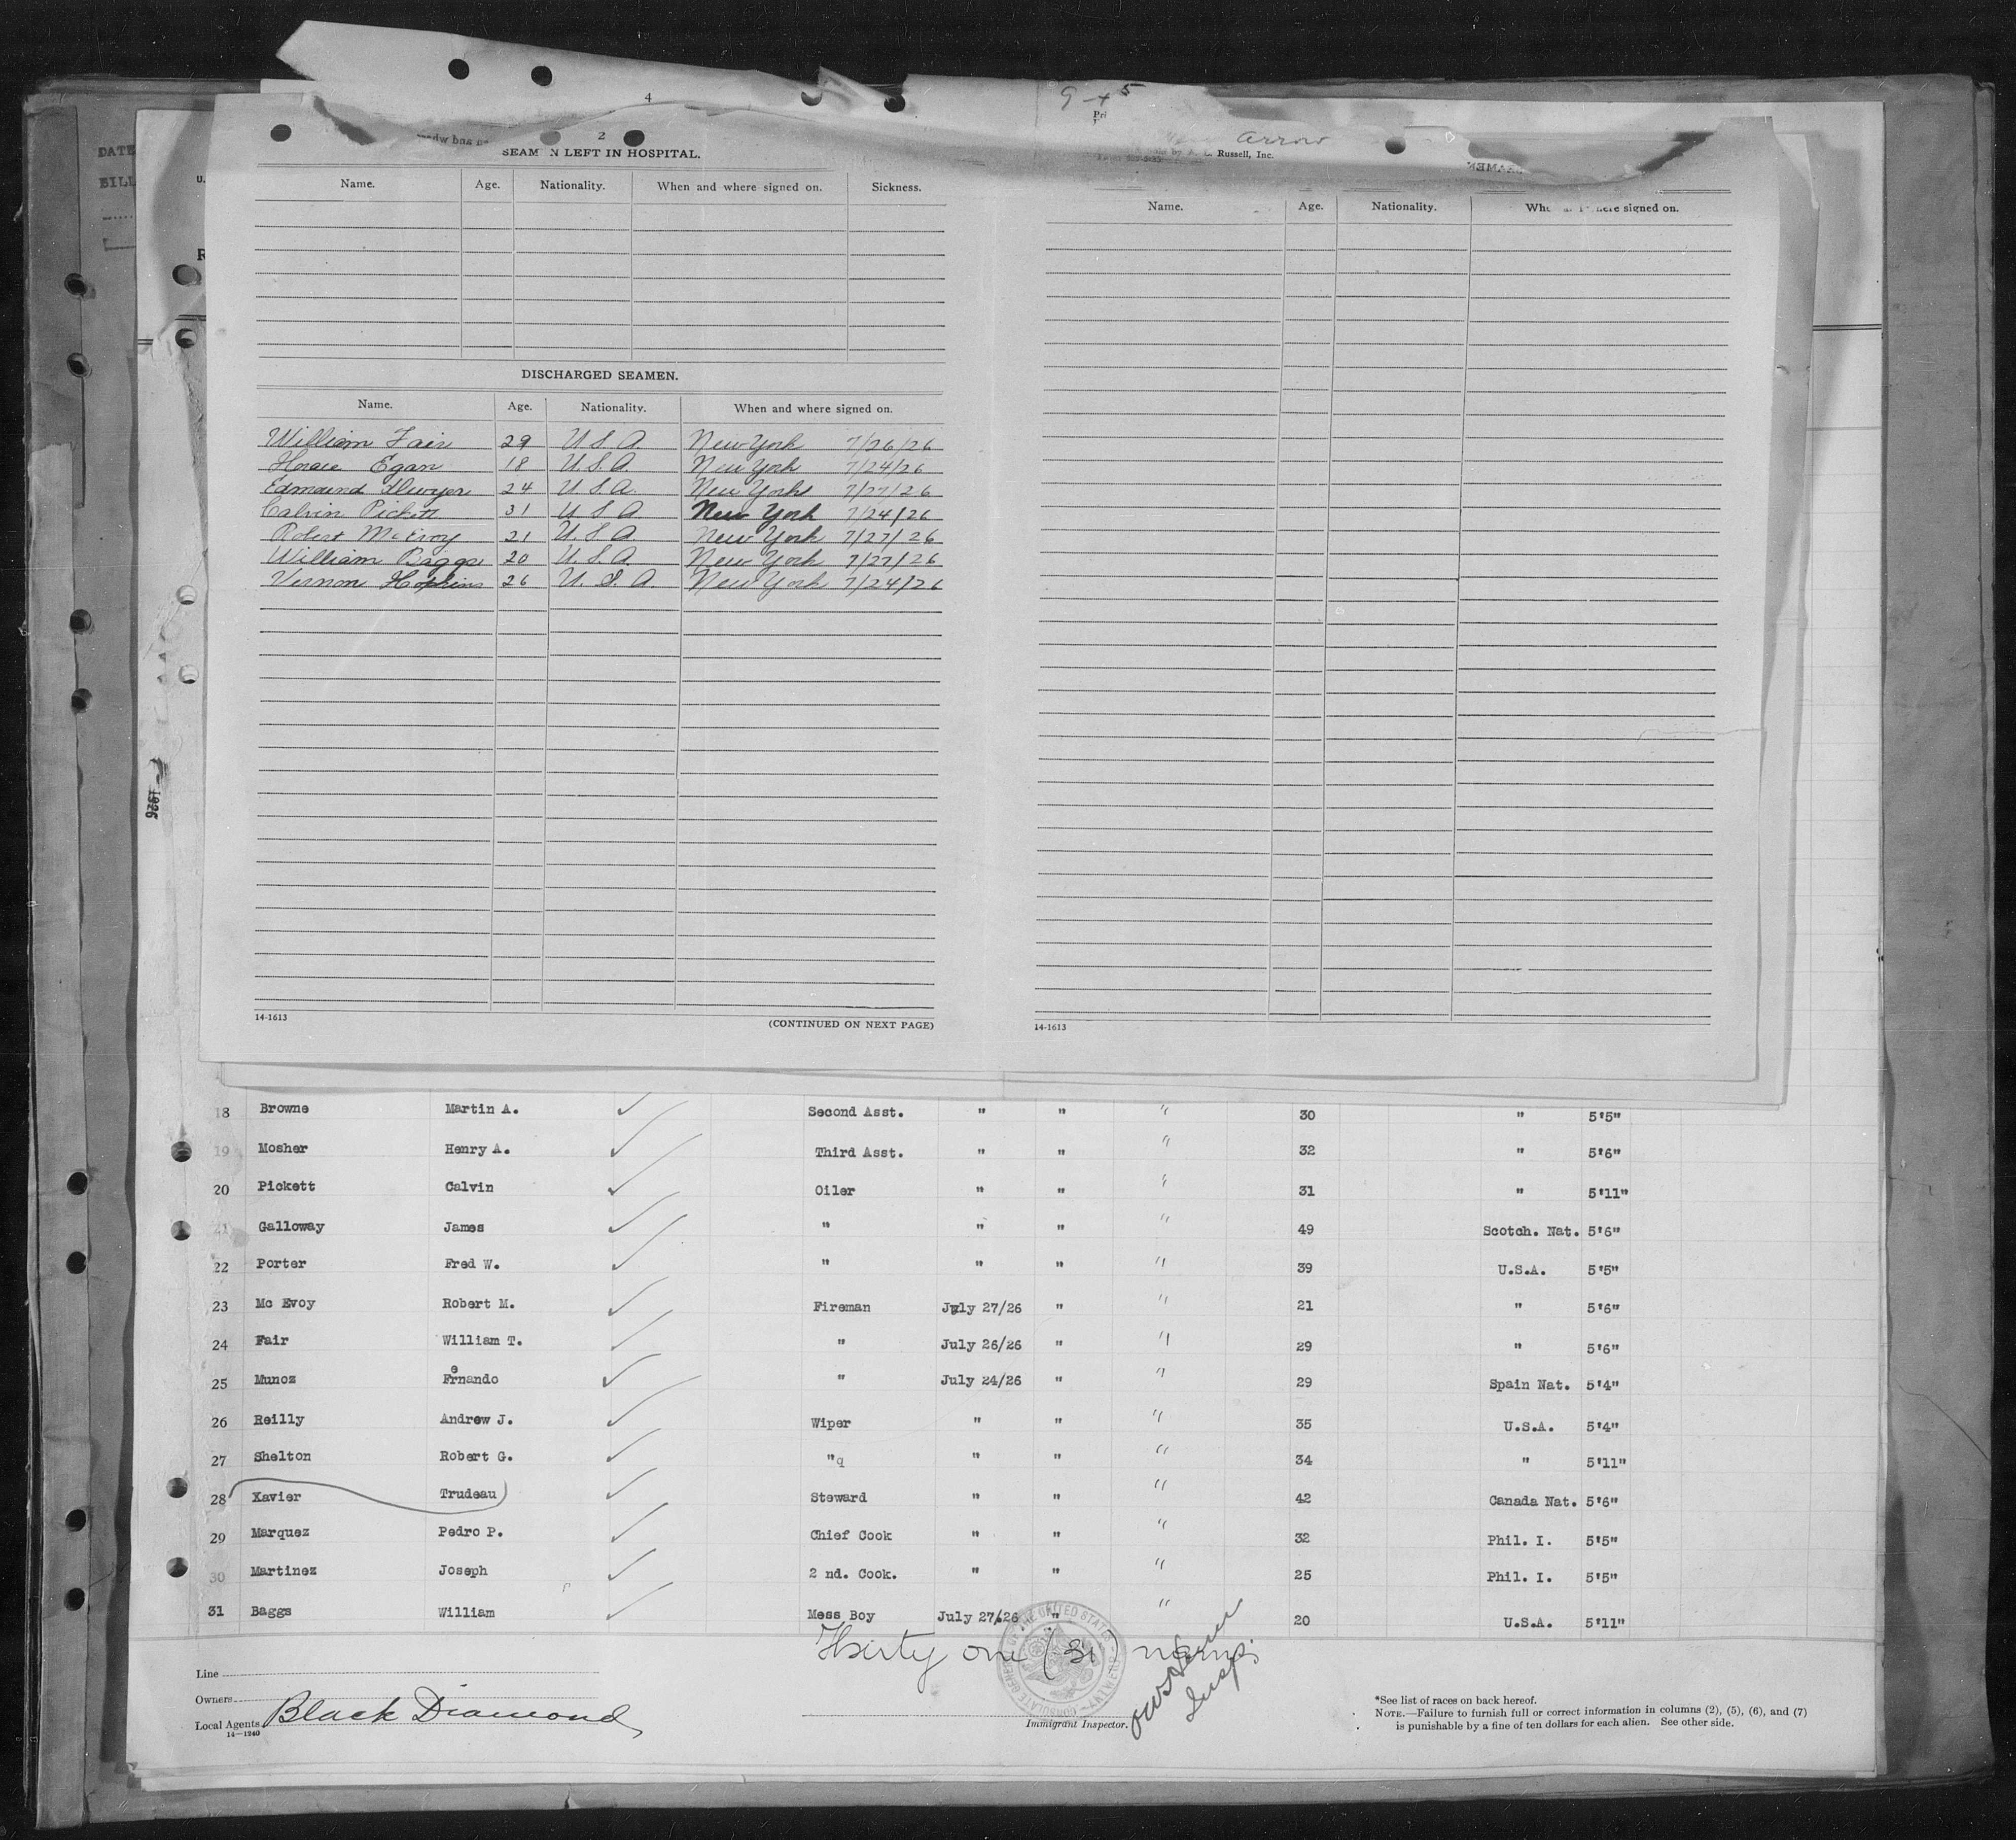 4
9 - + 5
2
Arrow
SEAM N LEFT IN HOSPITAL.
Russell, Inc.
DATE
BILL
U.
R
Name. Age. Nationality. When and where signed on. Sickness.
Name. Age. Nationality. signed on.
DISCHARGED SEAMEN.
Name. Age. Nationality. When and where signed on.
William Fair 29 U.S.A. New York 7/26/26
Horace Egan 18 U.S.A. New York 7/24/26
Edmound Dwyer 24 U.S.A. New York 7/27/26
Calvin Pickett 31 U.S.A. New York 7/24/26
Robert McEvoy 21 U.S.A. New York 7/27/26
William Baggs 20 U.S.A. New York 7/27/26
Vernon Hopkins 26 U.S.A. New York 7/24/26
1926
14-1613 (CONTINUED ON NEXT PAGE)
14-1613
18 Browne Martin A. Second Asst. " " " 30 " 5'5"
19 Mosher Henry A. Third Asst. " " " 32 " 5'6"
20 Pickett Calvin Oiler " " " 31 " 5'11"
21 Galloway James " " " " 49 Scotch. Nat. 5'6"
22 Porter Fred W. " " " " 39 U.S.A. 5'5"
23 Mc Evoy Robert M. Fireman July 27/26 " " 21 " 5'6"
24 Fair William T. " July 26/26 " " 29 " 5'6"
25 Munoz Fernando " July 24/26 " " 29 Spain Nat. 5'4"
26 Reilly Andrew J. Wiper " " " 35 U.S.A. 5'4"
27 Shelton Robert G. "q " " " 34 " 5'11"
28 Xavier Trudeau Steward " " " 42 Canada Nat. 5'6"
29 Marquez Pedro P. Chief Cook " " " 32 Phil. I. 5'5"
30 Martinez Joseph 2 nd. Cook. " " " 25 Phil. I. 5'5"
31 Baggs William Mess Boy July 27/26 " " 20 U.S.A. 5'11"
Thirty one (31) names
Line
Owners
Local Agents Black Diamond
14—1240
Immigrant Inspector.
Insp.
*See list of races on back hereof.
NOTE.—Failure to furnish full or correct information in columns (2), (5), (6), and (7)
is punishable by a fine of ten dollars for each alien. See other side.